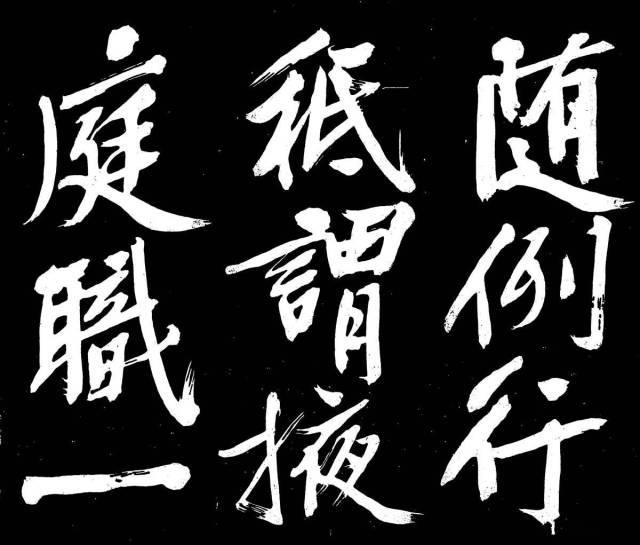 随例行
秪謂掖
庭職一